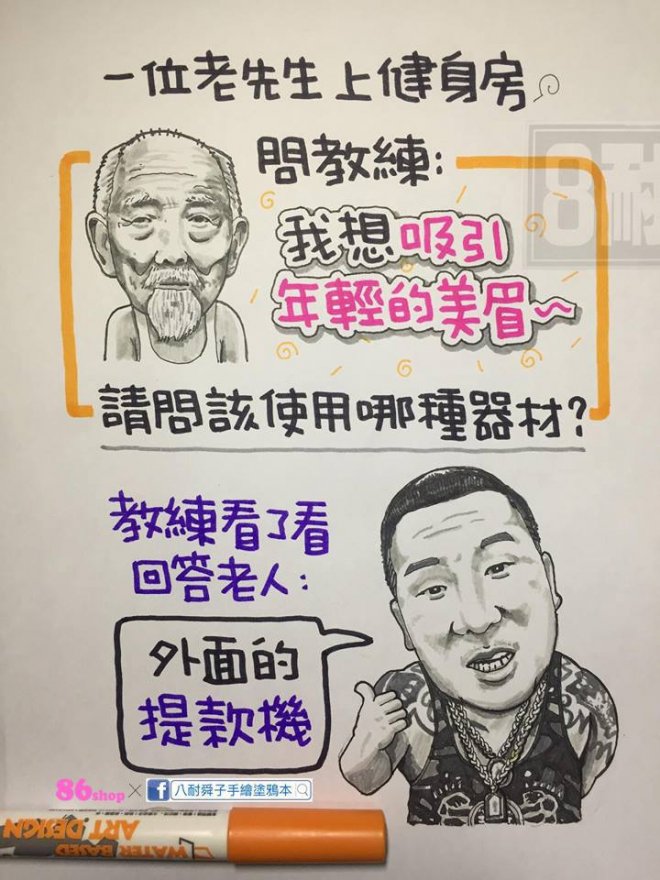 一位老先生上健身房
問教練:
我想吸引
年輕的美眉~
請問該使用哪種器材?
教練看了看
回答老人:
外面的
提款機
86shop × f 八耐舜子手繪塗鴉本
8耐
WATER BASED
ART DESIGN